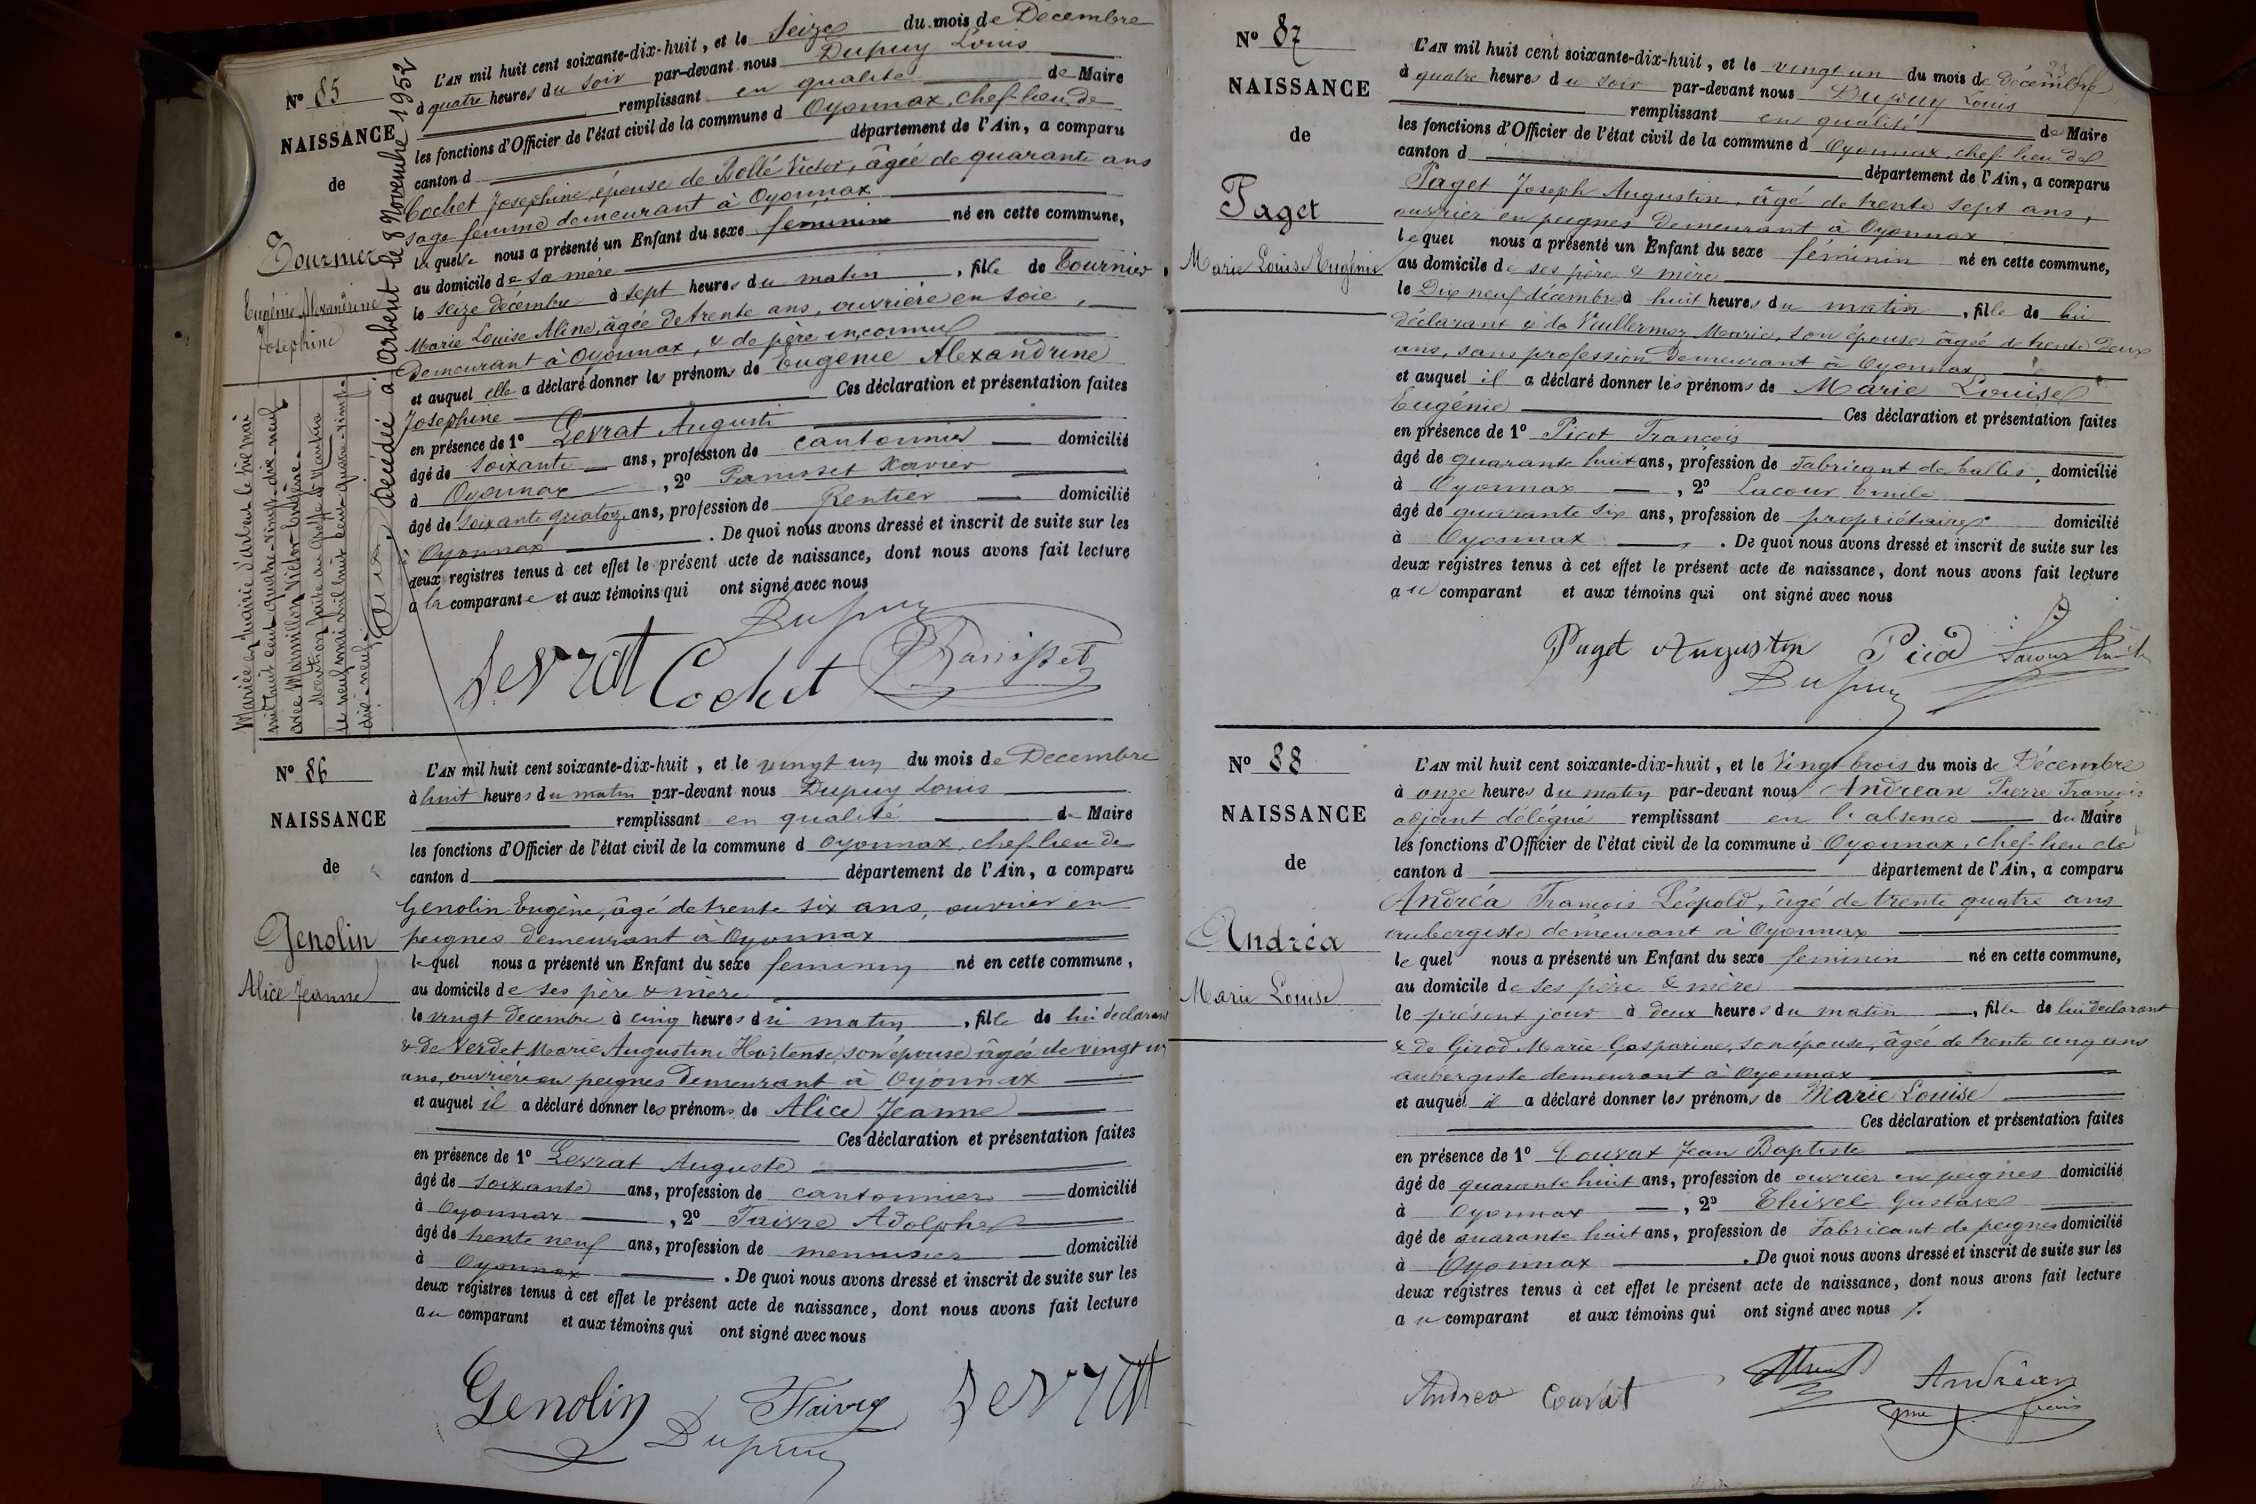 N° 85
NAISSANCE
de
Tournier
Eugénie Alexandrine
Joséphine
Mariée en mairie d'Arbent le huit mai
mil huit cent quatre-vingt-dix-neuf
avec Marmillon Victor Eugène.
Mention faite au Greffe de Nantua
le neuf mai mil huit cent quatre-vingt-
dix-neuf.
Décédée à Arbent le 8 Novembre 1952
L'AN mil huit cent soixante-dix-huit, et le Seize du mois de Décembre
à quatre heures du soir par-devant nous Dupuy Louis
remplissant en qualité de Maire
les fonctions d'Officier de l'état civil de la commune d Oyonnax, chef-lieu de
canton d département de l'Ain, a comparu
Cochet Joséphine, épouse de Bollé Victor, âgée de quarante ans
sage femme demeurant à Oyonnax
laquelle nous a présenté un Enfant du sexe féminin né en cette commune,
au domicile de sa mère
le seize décembre à sept heures du matin, fille de Tournier
Marie Louise Aline, âgée de trente ans, ouvrière en soie,
demeurant à Oyonnax, & de père inconnu
et auquel elle a déclaré donner les prénoms de Eugénie Alexandrine
Joséphine Ces déclaration et présentation faites
en présence de 1° Levrat Auguste
âgé de soixante ans, profession de cantonnier domicilié
à Oyonnax, 2° Panisset Xavier
âgé de soixante quatorze ans, profession de Rentier domicilié
à Oyonnax. De quoi nous avons dressé et inscrit de suite sur les
deux registres tenus à cet effet le présent acte de naissance, dont nous avons fait lecture
à la comparante et aux témoins qui ont signé avec nous
Dupuy
Levrat Cochet Panisset
N° 86
NAISSANCE
de
Genolin
Alice Jeanne
L'AN mil huit cent soixante-dix-huit, et le vingt un du mois de Decembre
à huit heures du matin par-devant nous Dupuy Louis
remplissant en qualité de Maire
les fonctions d'Officier de l'état civil de la commune d Oyonnax, chef-lieu de
canton d département de l'Ain, a comparu
Genolin Eugène, âgé de trente six ans, ouvrier en
peignes demeurant à Oyonnax
lequel nous a présenté un Enfant du sexe feminin né en cette commune,
au domicile de ses père & mère
le vingt decembre à cinq heures du matin, fille de lui declarant
& de Verdet Marie Augustine Hortense, son épouse âgée de vingt un
ans, ouvrière en peignes demeurant à Oyonnax
et auquel il a déclaré donner les prénoms de Alice Jeanne
Ces déclaration et présentation faites
en présence de 1° Levrat Auguste
âgé de soixante ans, profession de cantonnier domicilié
à Oyonnax, 2° Faivre Adolphe
âgé de trente neuf ans, profession de menuisier domicilié
à Oyonnax. De quoi nous avons dressé et inscrit de suite sur les
deux registres tenus à cet effet le présent acte de naissance, dont nous avons fait lecture
au comparant et aux témoins qui ont signé avec nous
Genolin Faivre Levrat
Dupuy
N° 87
NAISSANCE
de
Paget
Marie Louise Eugénie
L'AN mil huit cent soixante-dix-huit, et le vingt un du mois de Décembre
à quatre heures du soir par-devant nous Dupuy Louis
remplissant en qualité de Maire
les fonctions d'Officier de l'état civil de la commune d Oyonnax, chef-lieu de
canton d département de l'Ain, a comparu
Paget Joseph Augustin, âgé de trente sept ans,
ouvrier en peignes demeurant à Oyonnax
lequel nous a présenté un Enfant du sexe féminin né en cette commune,
au domicile de ses père & mère
le Dix neuf décembre à huit heures du matin, fille de lui
déclarant & de Vuillermoz Marie, son épouse âgée de trente deux
ans, sans profession demeurant à Oyonnax
et auquel il a déclaré donner les prénoms de Marie Louise
Eugénie Ces déclaration et présentation faites
en présence de 1° Picot François
âgé de quarante huit ans, profession de fabricant de bulles, domicilié
à Oyonnax, 2° Lacour Emile
âgé de quarante six ans, profession de propriétaire domicilié
à Oyonnax. De quoi nous avons dressé et inscrit de suite sur les
deux registres tenus à cet effet le présent acte de naissance, dont nous avons fait lecture
au comparant et aux témoins qui ont signé avec nous
Paget Augustin Picot Lacour Emile
Dupuy
N° 88
NAISSANCE
de
Andréa
Marie Louise
L'AN mil huit cent soixante-dix-huit, et le Vingt-trois du mois de Décembre
à onze heures du matin par-devant nous Andréan Pierre François
adjoint délégué remplissant en l'absence du Maire
les fonctions d'Officier de l'état civil de la commune d Oyonnax, chef-lieu de
canton d département de l'Ain, a comparu
Andréa François Léopold, âgé de trente quatre ans
aubergiste demeurant à Oyonnax
lequel nous a présenté un Enfant du sexe féminin né en cette commune,
au domicile de ses père & mère
le présent jour à deux heures du matin, fille de lui declarant
& de Girod Marie Gasparine, son épouse, âgée de trente cinq ans
aubergiste demeurant à Oyonnax
et auquel il a déclaré donner les prénoms de Marie Louise
Ces déclaration et présentation faites
en présence de 1° Couvat Jean Baptiste
âgé de quarante huit ans, profession de ouvrier en peignes domicilié
à Oyonnax, 2° Thivel Gustave
âgé de quarante huit ans, profession de Fabricant de peignes domicilié
à Oyonnax. De quoi nous avons dressé et inscrit de suite sur les
deux registres tenus à cet effet le présent acte de naissance, dont nous avons fait lecture
au comparant et aux témoins qui ont signé avec nous
Andrea Couvat Andréan